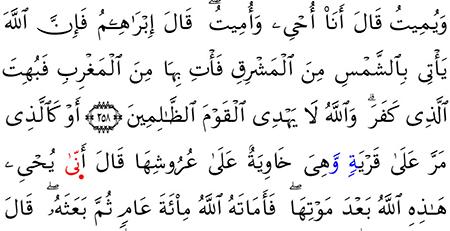 وَيُمِيتُ قَالَ أَنَا۠ أُحْىِۦ وَأُمِيتُ ۖ قَالَ إِبْرَٰهِـۧمُ فَإِنَّ ٱللَّهَ
يَأْتِى بِٱلشَّمْسِ مِنَ ٱلْمَشْرِقِ فَأْتِ بِهَا مِنَ ٱلْمَغْرِبِ فَبُهِتَ
ٱلَّذِى كَفَرَ ۗ وَٱللَّهُ لَا يَهْدِى ٱلْقَوْمَ ٱلظَّـٰلِمِينَ ﴿٢٥٨﴾ أَوْ كَٱلَّذِى
مَرَّ عَلَىٰ قَرْيَةٍۢ وَّهِىَ خَاوِيَةٌ عَلَىٰ عُرُوشِهَا قَالَ أَنَّىٰ يُحْىِۦ
هَـٰذِهِ ٱللَّهُ بَعْدَ مَوْتِهَا ۖ فَأَمَاتَهُ ٱللَّهُ مِا۟ئَةَ عَامٍۢ ثُمَّ بَعَثَهُۥ ۖ قَالَ